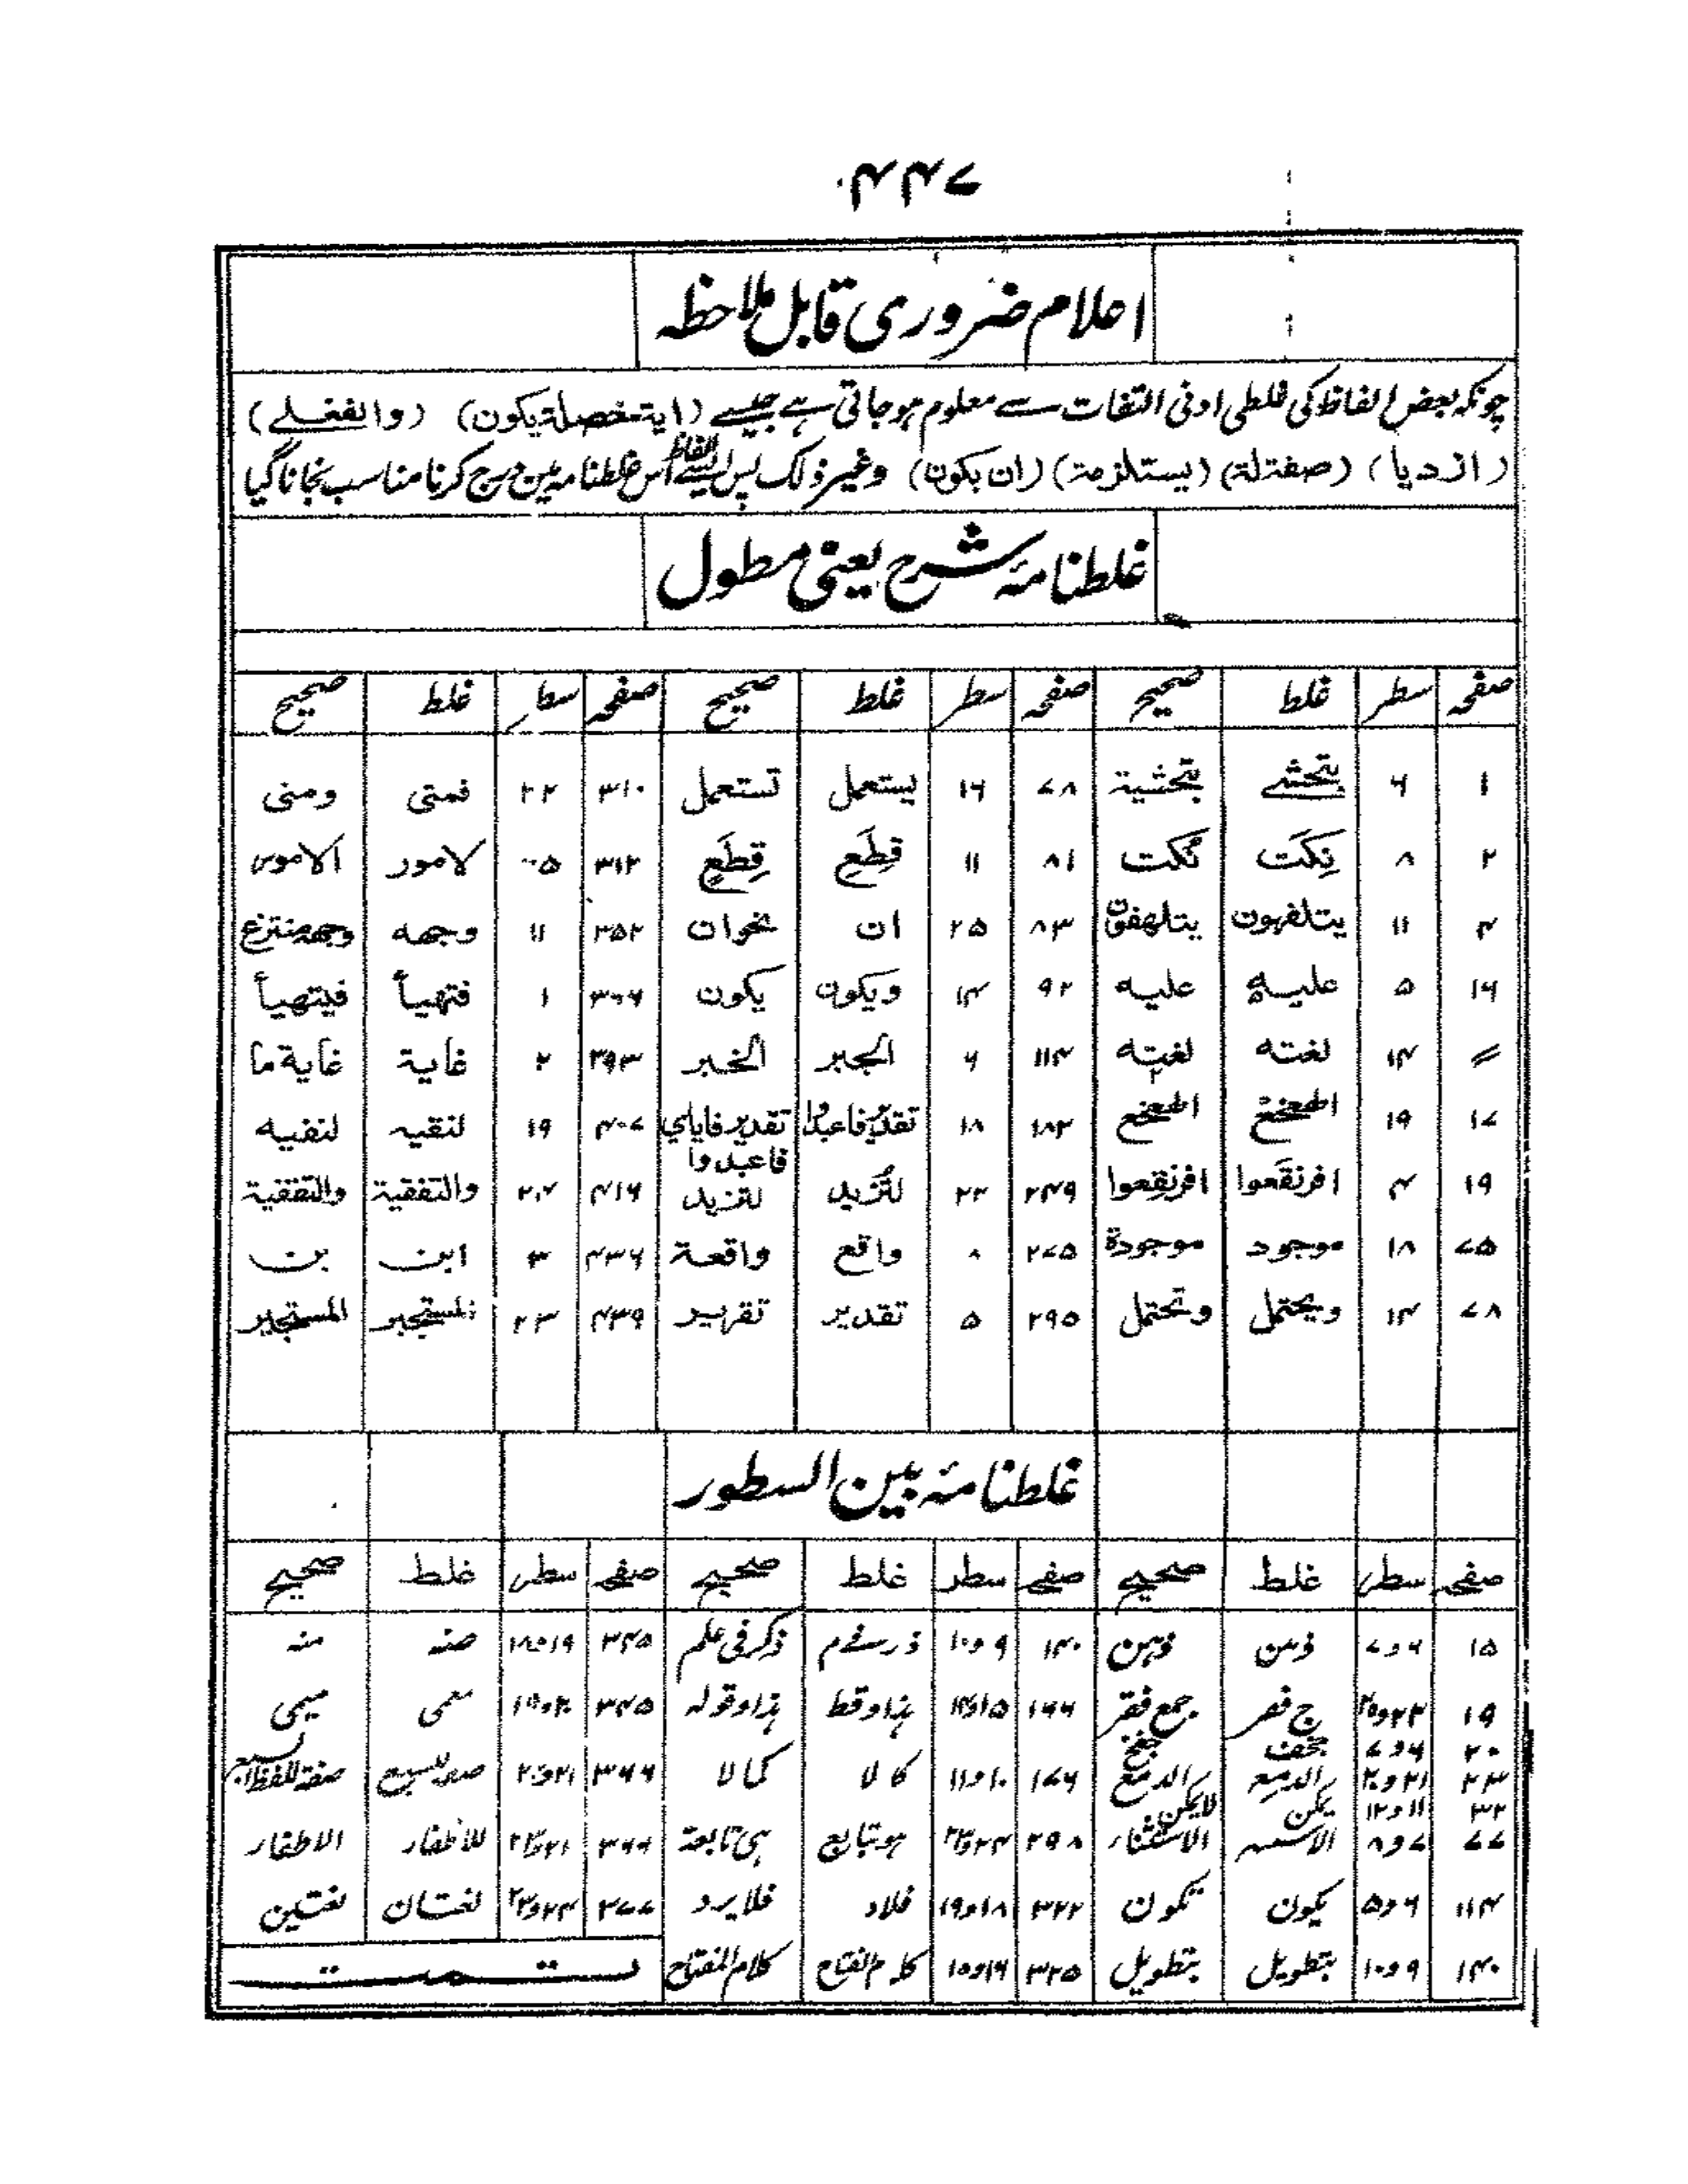 ۴۴۷
اعلام ضروری قابل ملاحظہ
چونکہ بعض الفاظ کی غلطی ادنی التفات سے معلوم ہوجاتی ہے جیسے (ایتخصلة یکون) (والفغلے)
(ازدیا) (صفتلة) (یستلزمة) (ان بکون) وغیر ذلک پس ایسے الفاظ اس غلطنامہ مین درج کرنا مناسب نجانا گیا
غلطنامۂ شرح یعنی مطول
صفحہ سطر غلط صحیح صفحہ سطر غلط صحیح صفحہ سطر غلط صحیح
۱ ۶ بتحشے بتحشیة ۷۸ ۱۶ یستعمل تستعمل ۳۱۰ ۲۲ فمتی ومنی
۲ ۸ نِکَت نُکت ۸۱ ۱۱ قِطَع قِطَعٍ ۳۱۲ ۰۵ لامور الامور
۴ ۱۱ یتلفہون یتلهفون ۸۳ ۲۵ ان نحوان ۳۵۲ ۱۱ وجهه وجهه منتزع
۱۶ ۵ علیہ علیه ۹۲ ۱۴ ویکون یکون ۳۰۶ ۱ فتهیأ فیتهیأ
۱۴ لغته لغته ۱۱۴ ۶ الجبر الخبر ۳۹۳ ۲ غایة غایة ما
۱۷ ۱۹ ۱۸۲ ۱۸ تقدیر فاعبدوا تقدیر فایای فاعبدوا ۴۰۷ ۱۹ لنقیہ لنفیه
۱۹ ۴ افرنقَعوا افرنقِعوا ۲۴۹ ۲۲ للتزید للتزید ۴۱۶ ۲۴ والتفقیة والتقفیة
۷۵ ۱۸ موجود موجودة ۲۷۵ ۸ واقع واقعة ۴۳۶ ۳ ابن بن
۷۸ ۱۴ ویحتمل وتحتمل ۲۹۵ ۵ تقدیر تقریر ۴۳۹ ۲۳ المستجیر
غلطنامۂ بین السطور
صفحہ سطر غلط صحیح صفحہ سطر غلط صحیح صفحہ سطر غلط صحیح
۱۵ ۶و۷ ذہن ۱۴۰ ۹و۱۰ ذکر فی علم ۳۴۵ ۱۹و۱۸ صنہ منہ
۱۹ ج فقر جمع فقر ۱۶۶ ہذا وقط ہذا وقولہ ۳۴۵
۲۰ ۶و۷
۲۳ ۲۱و۲۰ الدمع الدمع ۱۷۶ ۱۰و۱۱ کالا کمالا ۳۶۶
۳۲ ۱۱و۱۲ یمکن لایمکن
۷۷ ۷و۸ الاستثناء ۲۹۸ ہو تابع ہی تابعة ۳۶۶ للأظفار الاظفار
۱۱۴ ۶و۵ یکون تکون ۳۲۲ ۱۸و۱۹ فلاد فلایرد ۳۷۷ لغتان لغتین
۱۴۰ ۹و۱۰ بتطویل بتطویل ۳۲۵ ۱۶و۱۵ کلام المفتاح
تمت